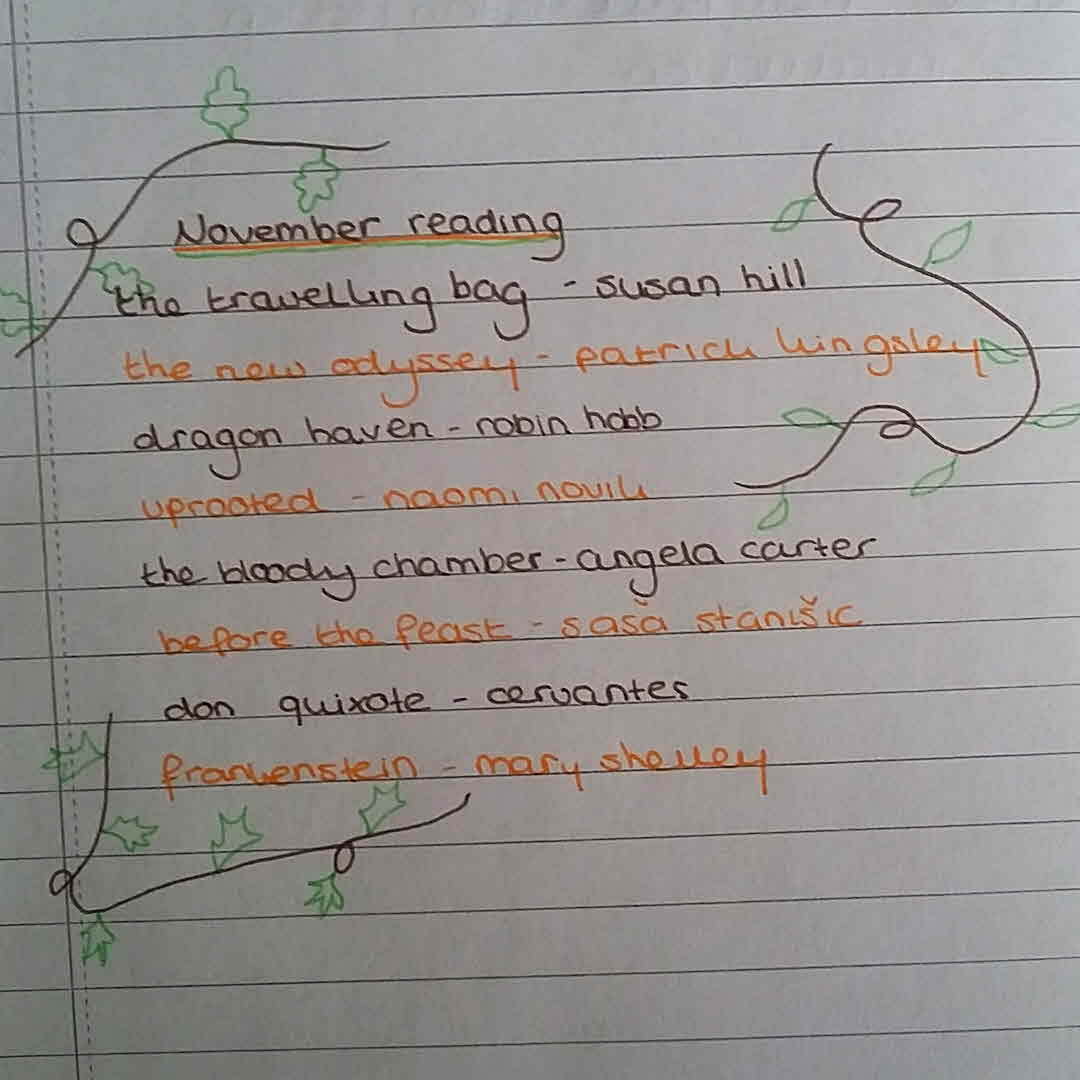 November reading
the travelling bag - susan hill
the new odyssey - patrick kingsley
dragon haven - robin hobb
uprooted - naomi novik
the bloody chamber - angela carter
before the feast - saša stanišic
don quixote - cervantes
frankenstein - mary shelley